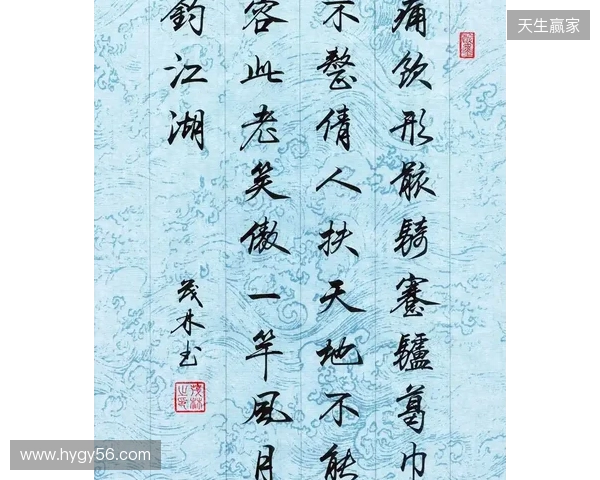 痛飲形骸騎蹇驢葛巾
不整倩人扶天地不能
容此老笑傲一竿風月
釣江湖
茂林书
天生赢家
www.hygy56.com